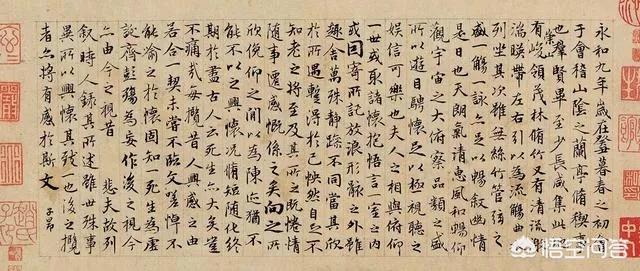 永和九年歲在癸丑暮春之初會
于會稽山陰之蘭亭脩稧事
也羣賢畢至少長咸集此地
有崇山峻領茂林脩竹又有清流激
湍暎帶左右引以為流觴曲水
列坐其次雖無絲竹管弦之
盛一觴一詠亦足以暢叙幽情
是日也天朗氣清惠風和暢仰
觀宇宙之大俯察品類之盛
所以遊目騁懷足以極視聽之
娛信可樂也夫人之相與俯仰
一世或取諸懷抱悟言一室之內
或因寄所託放浪形骸之外雖
趣舍萬殊静躁不同當其欣
於所遇暫得於己怏然自足不
知老之將至及其所之既惓情
隨事遷感慨係之矣向之所
欣俛仰之間以為陳迹猶不
能不以之興懷況脩短隨化終
期於盡古人云死生亦大矣豈
不痛哉每攬昔人興感之由
若合一契未嘗不臨文嗟悼不
能喻之於懷固知一死生為虛
誕齊彭殤為妄作後之視今
亦由今之視昔 悲夫故列
叙時人錄其所述雖世殊事
異所以興懷其致一也後之攬
者亦將有感於斯文
子昂
悟空问答